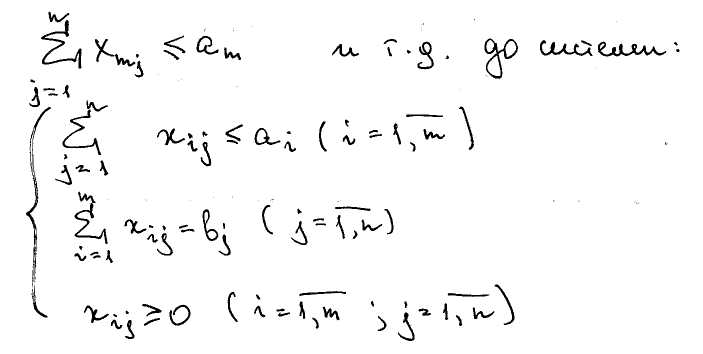 $\sum_{j=1}^{n} x_{mj} \leq a_m$ и т.д. до системы:
$\sum_{j=1}^{n} x_{ij} \leq a_i \ (i = \overline{1,m})$
$\sum_{i=1}^{m} x_{ij} = b_j \ (j = \overline{1,n})$
$x_{ij} \geq 0 \ (i = \overline{1,m} \ ; j = \overline{1,n})$